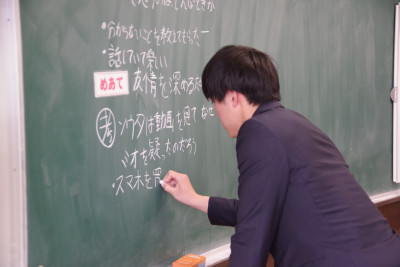 ・分からないことを教えてもらったー
・話していて楽しい
めあて 友情を深めるた
考 ソウタは動画を見てなぜ
ミオを疑ったのだろう
・スマホを